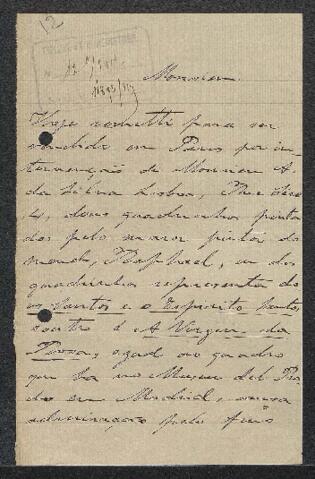 12
Monsieur
Hoje remetti para ser
vendido em Paris por in
termenção de Monsieur A.
da Silva Lisboa, Rue
dous quadrinhos pinta
dos pelo maior pintor do
mundo, Raphael, um dos
quadrinhos representa do
os Santos e o Espirito Santo,
outro é A Virgem da
Povoa, egual ao quadro
que ha no Museu del Pra
do em Madrid, minha
admiração pelo